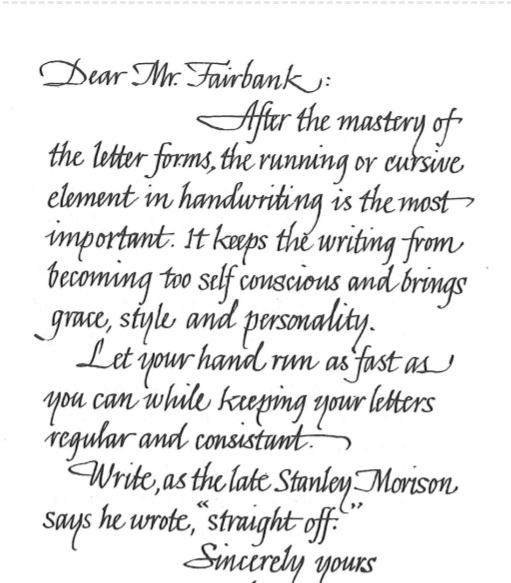 Dear Mr. Fairbank:
After the mastery of
the letter forms, the running or cursive
element in handwriting is the most
important. It keeps the writing from
becoming too self conscious and brings
grace, style and personality.
Let your hand run as fast as
you can while keeping your letters
regular and consistant.
Write, as the late Stanley Morison
says he wrote, "straight off."
Sincerely yours